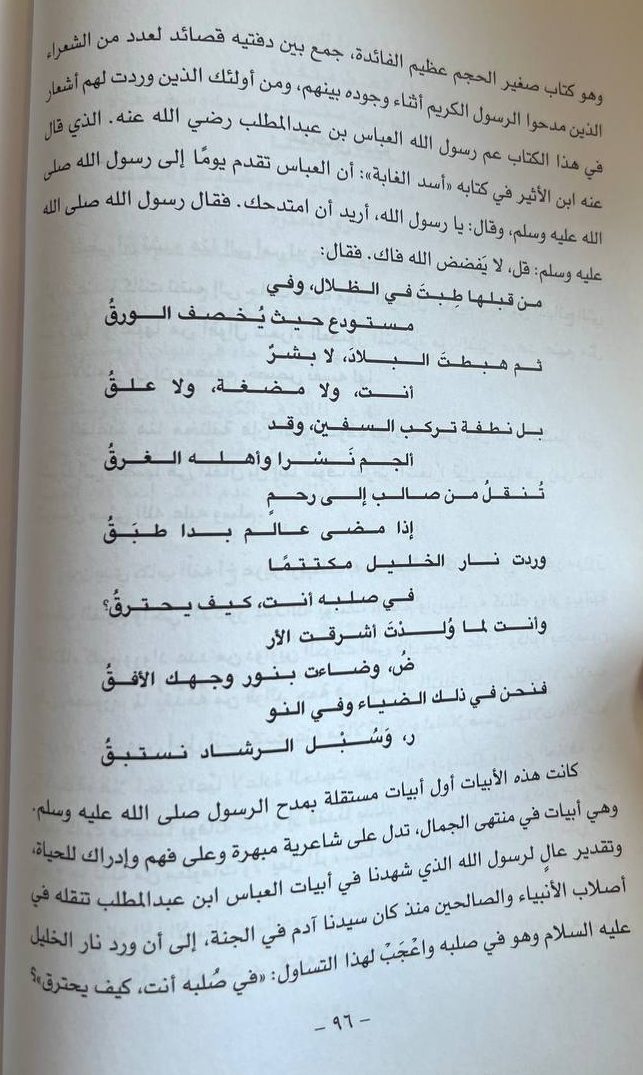 وهو كتاب صغير الحجم عظيم الفائدة، جمع بين دفتيه قصائد لعدد من الشعراء
الذين مدحوا الرسول الكريم أثناء وجوده بينهم، ومن أولئك الذين وردت لهم أشعار
في هذا الكتاب عم رسول الله العباس بن عبدالمطلب رضي الله عنه. الذي قال
عنه ابن الأثير في كتابه «أسد الغابة»: أن العباس تقدم يومًا إلى رسول الله صلى
الله عليه وسلم، وقال: يا رسول الله، أريد أن امتدحك. فقال رسول الله صلى الله
عليه وسلم: قل، لا يَفضض الله فاك. فقال:
من قبلها طِبتَ في الظلال، وفي
مستودع حيث يُخصف الورقُ
ثم هبطتَ البلادَ، لا بشرٌ
أنت، ولا مضغة، ولا علقُ
بل نطفة تركب السفين، وقد
ألجم نَسْرا وأهله الغرقُ
تُنقلُ من صالب إلى رحمٍ
إذا مضى عالم بدا طبَقُ
وردت نار الخليل مكتتمًا
في صلبه أنت، كيف يحترقُ؟
وأنت لما وُلدْتَ أشرقت الأر
ضُ، وضاءت بنور وجهك الأفقُ
فنحن في ذلك الضياء وفي النو
ر، وَسُبْل الرشاد نستبقُ
كانت هذه الأبيات أول أبيات مستقلة بمدح الرسول صلى الله عليه وسلم.
وهي أبيات في منتهى الجمال، تدل على شاعرية مبهرة وعلى فهم وإدراك للحياة،
وتقدير عالٍ لرسول الله الذي شهدنا في أبيات العباس ابن عبدالمطلب تنقله في
أصلاب الأنبياء والصالحين منذ كان سيدنا آدم في الجنة، إلى أن ورد نار الخليل
عليه السلام وهو في صلبه واعْجَبْ لهذا التساول: «في صُلبه أنت، كيف يحترق»؟
- ٩٦ -